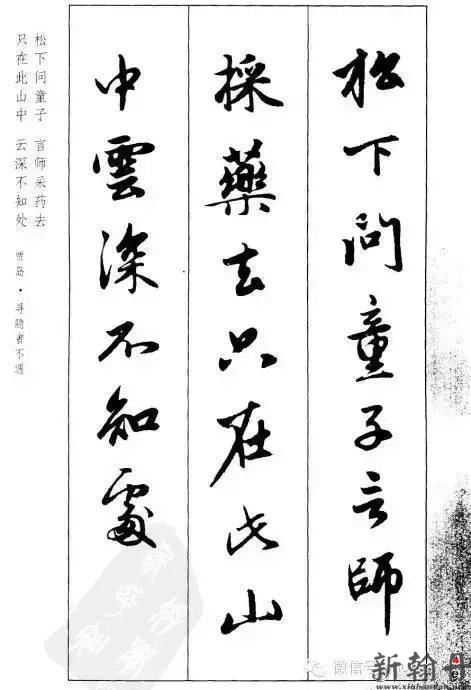 松下问童子言師
採藥去只在此山
中雲深不知處
松下问童子 言师采药去
只在此山中 云深不知处
贾岛·寻隐者不遇
微信号
新翰